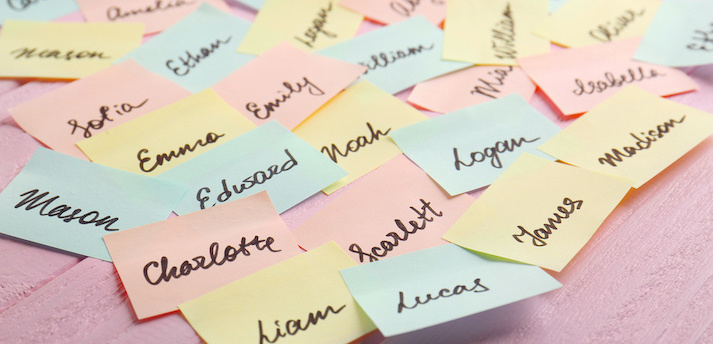 Amelia
Logan
William
Oliver
Mason
Ethan
William
Isabella
Sofia
Emily
Emma
Noah
Logan
Madison
Edward
Mason
Charlotte
Scarlett
James
Liam
Lucas